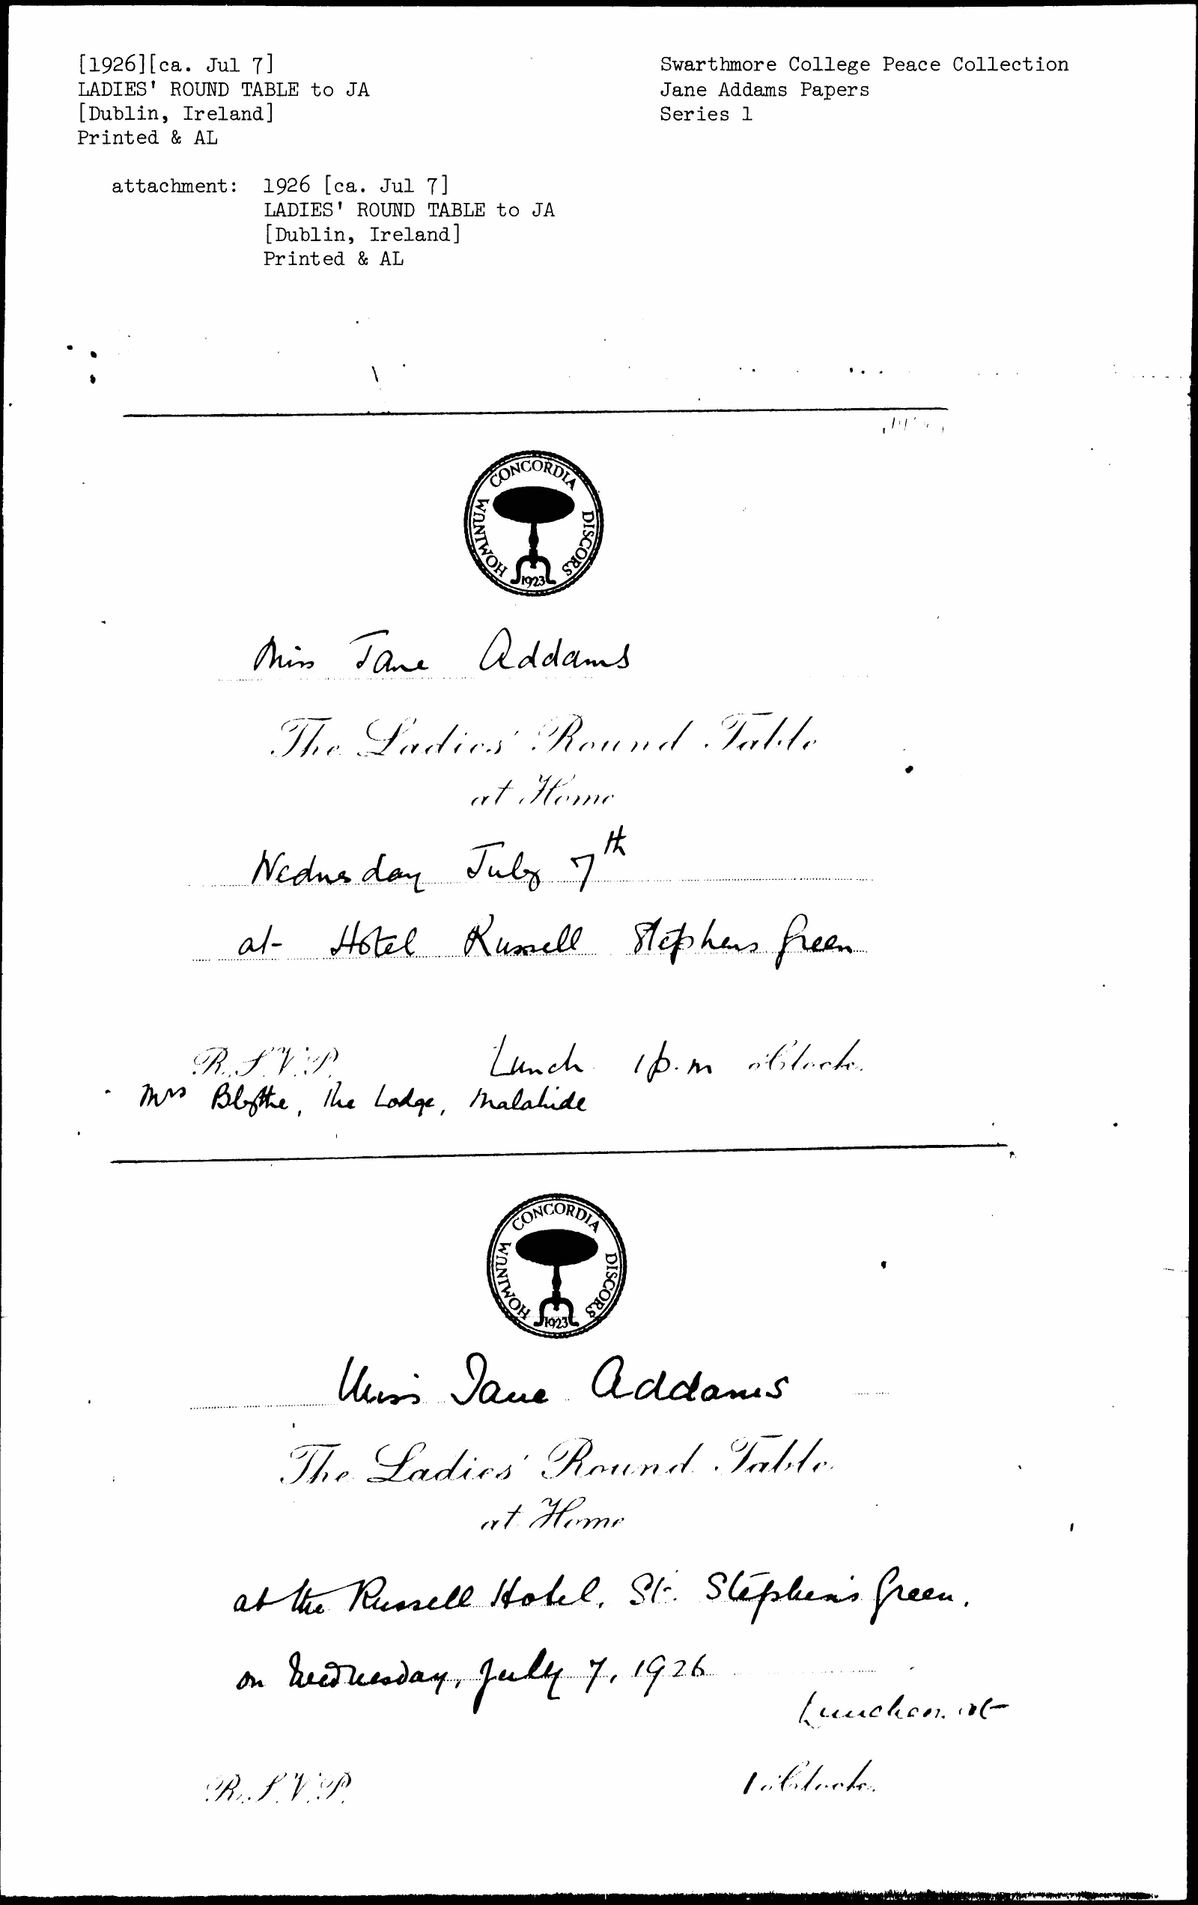 [1926][ca. Jul 7]
LADIES' ROUND TABLE to JA
[Dublin, Ireland]
Printed & AL
Swarthmore College Peace Collection
Jane Addams Papers
Series 1
attachment: 1926 [ca. Jul 7]
LADIES' ROUND TABLE to JA
[Dublin, Ireland]
Printed & AL
HOMINUM CONCORDIA DISCORS
1923
Miss Jane Addams
The Ladies' Round Table
at Home
Wednesday July 7th
at Hotel Russell Stephens Green
R.S.V.P. Lunch 1 p.m o'Clock.
Mrs Blythe, The Lodge, Malahide
HOMINUM CONCORDIA DISCORS
1923
Miss Jane Addams
The Ladies' Round Table
at Home
at the Russell Hotel, St. Stephen's Green.
on Wednesday, July 7, 1926
Luncheon at
R.S.V.P. 1 o'Clock.